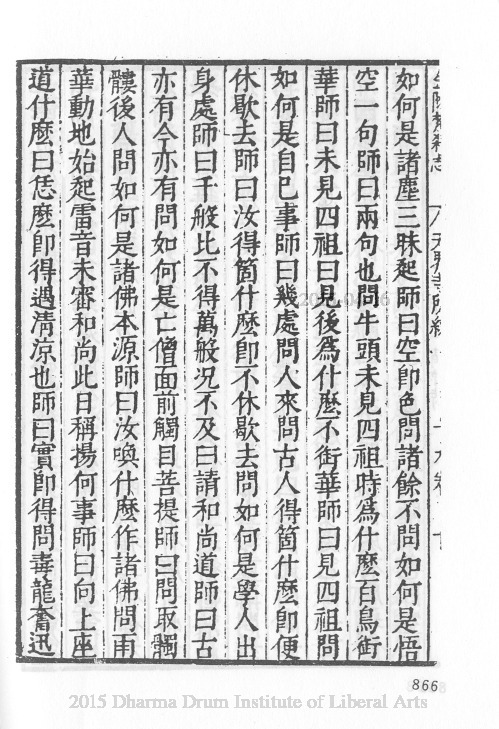 如何是諸塵三昧起師曰空卽色問諸餘不問如何是悟
空一句師曰兩句也問牛頭未見四祖時爲什麽百鳥銜
華師曰未見四祖曰見後爲什麽不銜華師曰見四祖問
如何是自己事師曰幾處問人來問古人得箇什麽卽便
休歇去師曰汝得箇什麽卽不休歇去問如何是學人出
身處師曰千般比不得萬般况不及曰請和尚道師曰古
亦有今亦有問如何是亡僧面前觸目菩提師曰問取髑
髏後人問如何是諸佛本源師曰汝喚什麽作諸佛問雨
華動地始起雷音未審和尚此日稱揚何事師曰向上座
道什麽曰恁麽卽得遇清凉也師曰實卽得問毒龍奮迅
866
2015 Dharma Drum Institute of Liberal Arts